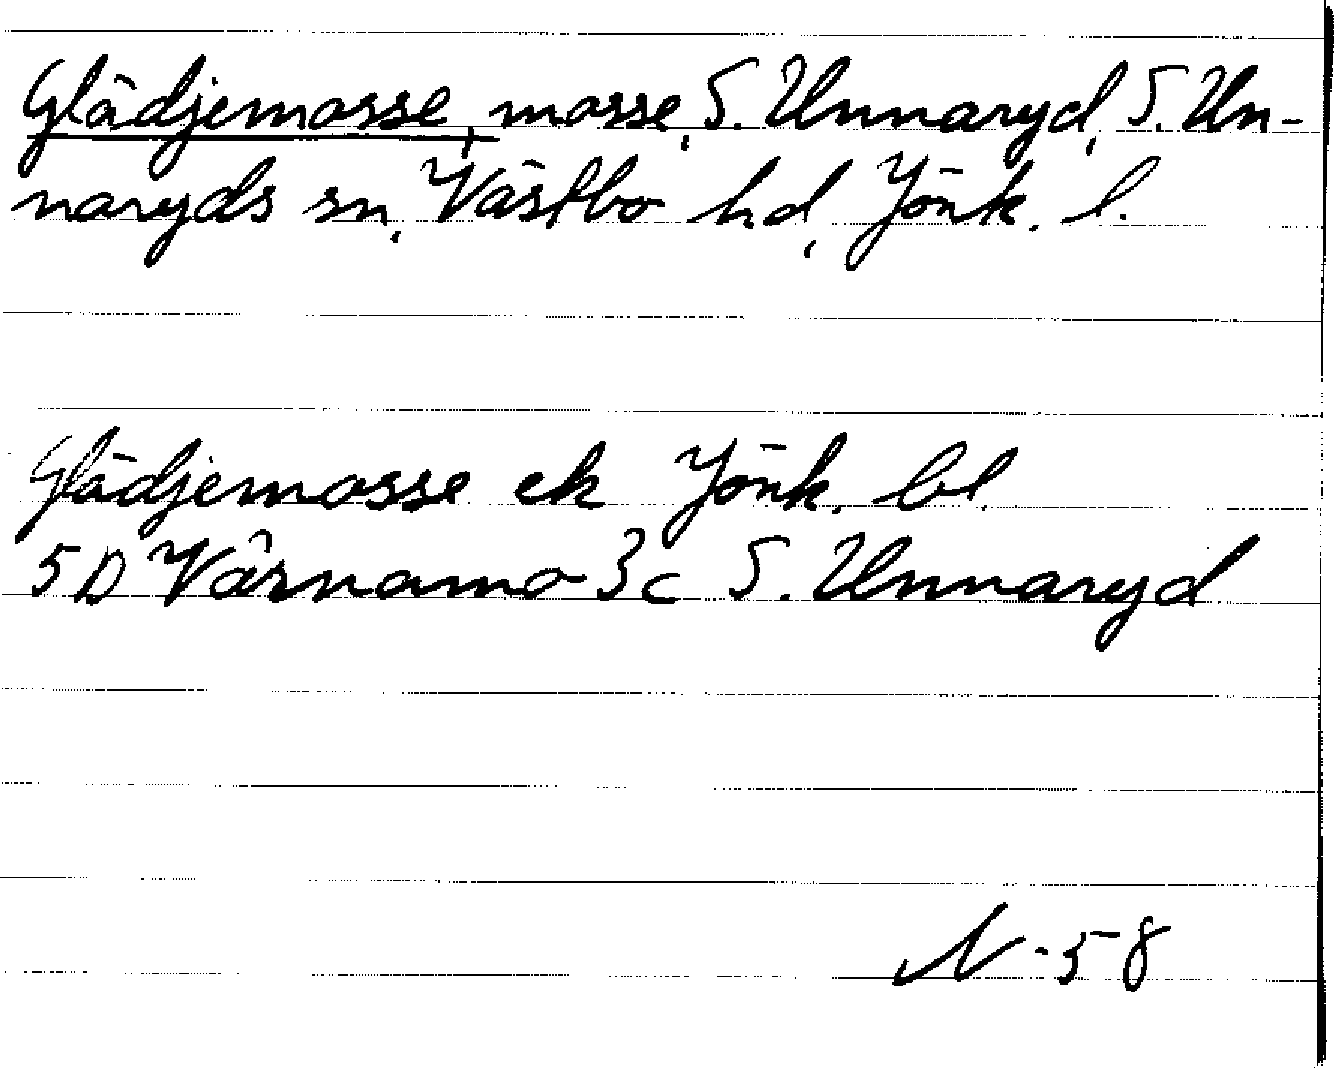 Glädjemosse, mosse, S. Unnaryd, S. Un-
naryds sn, Västbo hd, Jönk. l.
Glädjemosse ek Jönk. bl.
5D Värnamo 3c S. Unnaryd
N-58